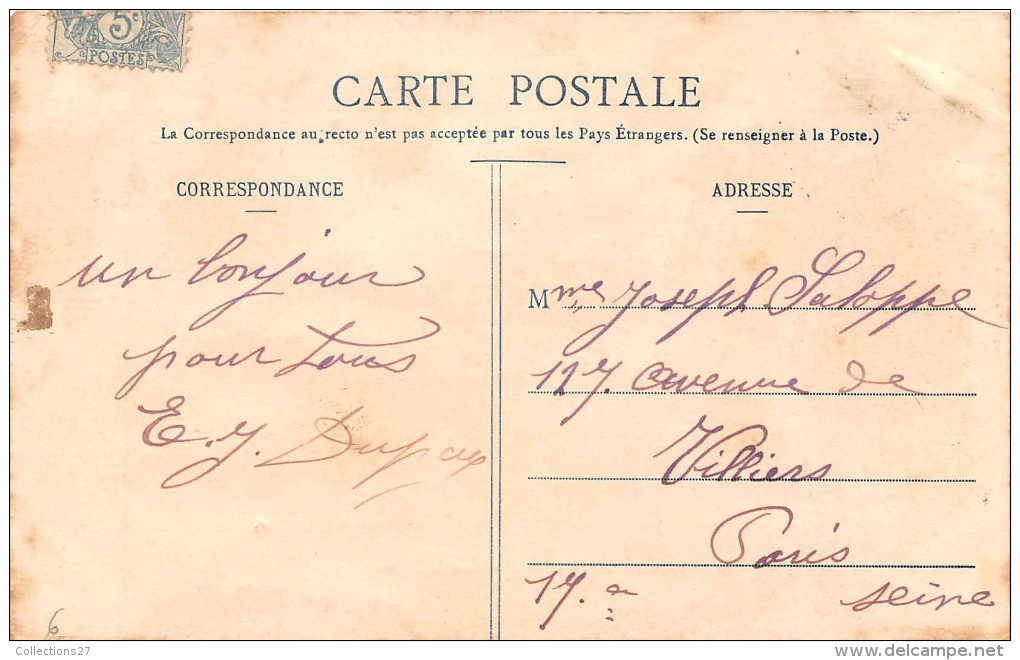 5c
POSTES
CARTE POSTALE
La Correspondance au recto n'est pas acceptée par tous les Pays Étrangers. (Se renseigner à la Poste.)
CORRESPONDANCE
un bonjour
pour tous
E. J.
ADRESSE
Mme Joseph Saloppe
127. avenue de
Villiers
Paris
17.e Seine
6
Collections27
delcampe.net